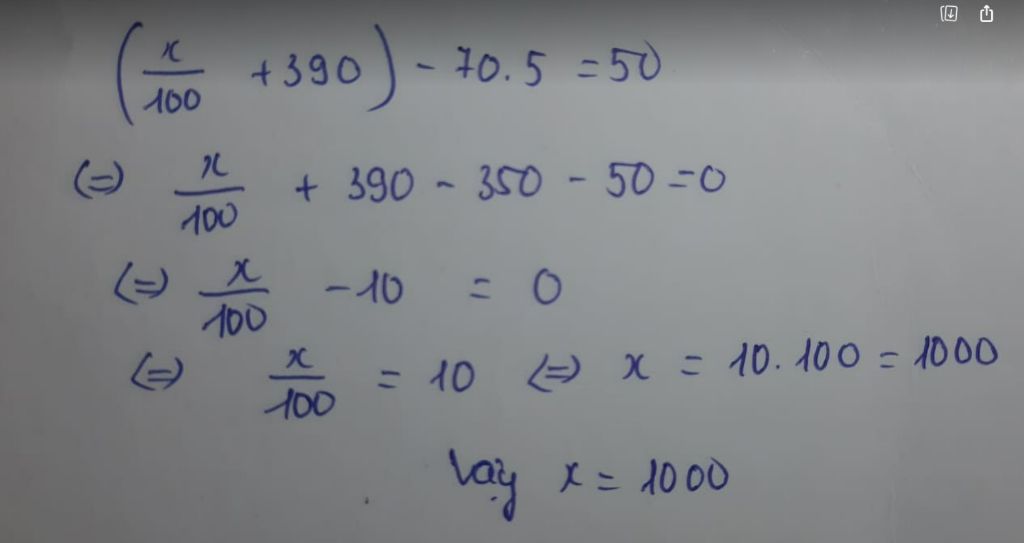 (x/100 + 390) - 70.5 = 50
(=) x/100 + 390 - 350 - 50 = 0
(=) x/100 - 10 = 0
(=) x/100 = 10 (=) x = 10.100 = 1000
Vậy x = 1000